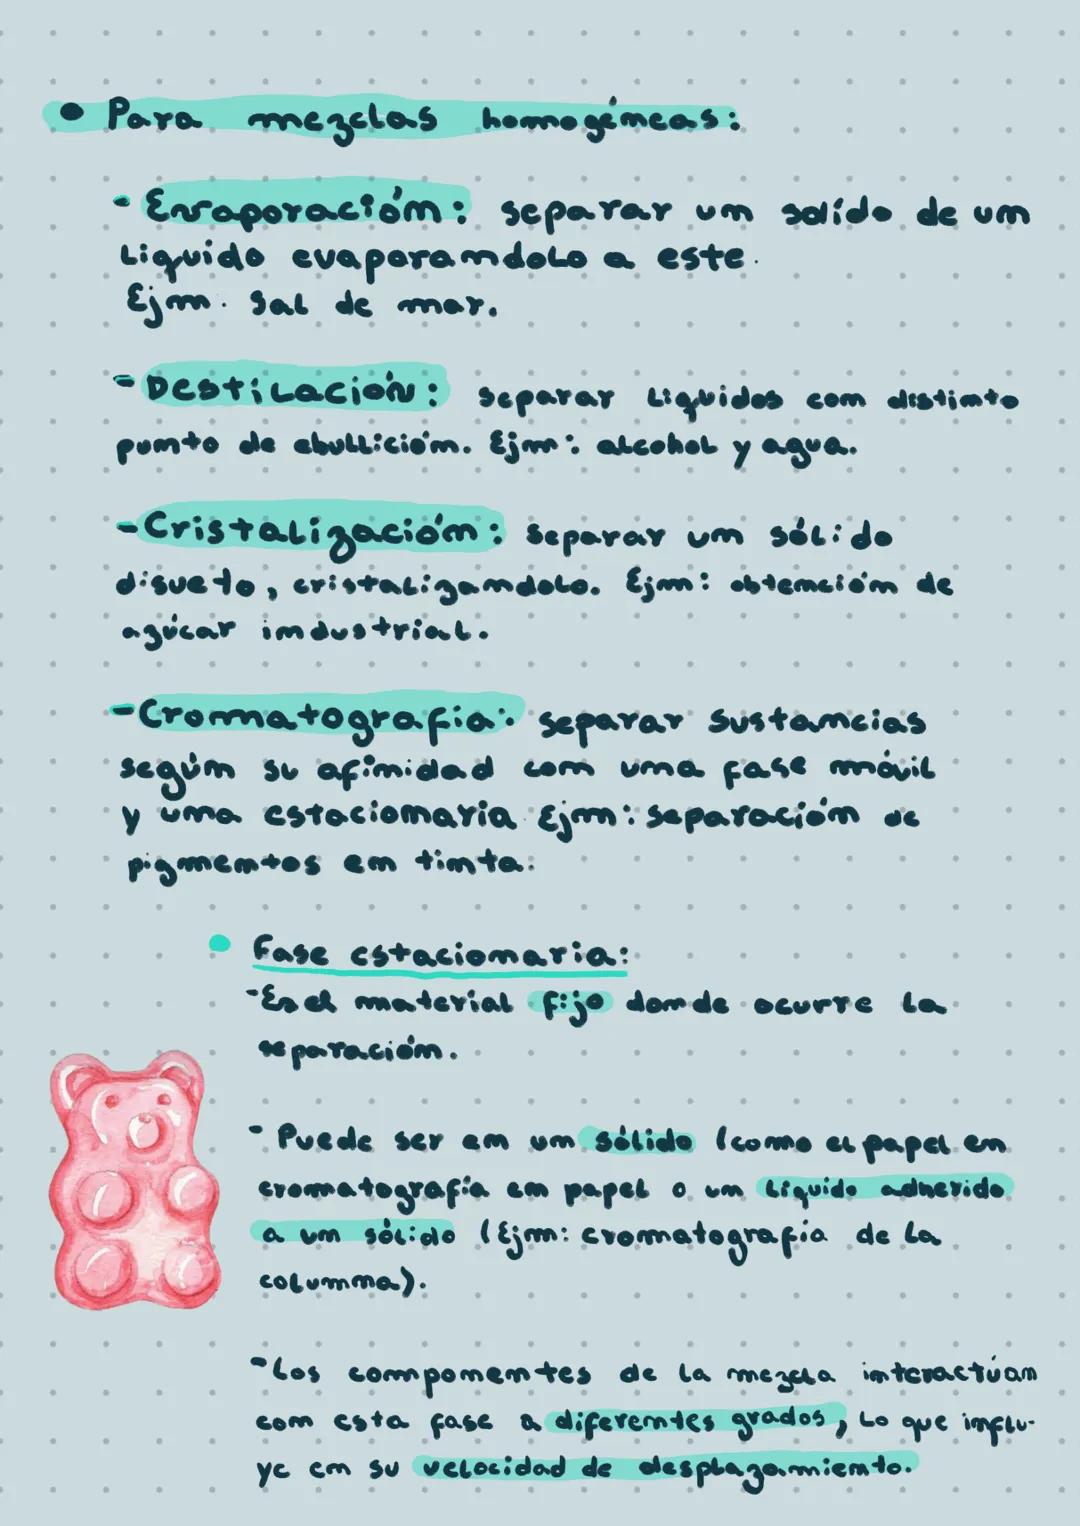 • Para mezclas homogéneas:
- Evaporación: separar un solído de un
liquido evaporandolo a este.
Ejm. Sal de mar.
- Destilación: separar liquidos con distinto
punto de ebullición. Ejm: alcohol y agua.
- Cristalización: separar un sólido
disuelto, cristalizandolo. Ejm: obtención de
azúcar industrial.
- Cromatografía: separar sustancias
según su afinidad con una fase móvil
y una estacionaria. Ejm: separación de
pigmentos en tinta.
• Fase estacionaria:
- Es el material fijo donde ocurre la
separación.
- Puede ser en un sólido (como el papel en
cromatografía en papel o un líquido adherido
a un sólido (Ejm: cromatografía de la
columna).
- Los componentes de la mezcla interactúan
con esta fase a diferentes grados, lo que influ-
ye en su velocidad de desplazamiento.